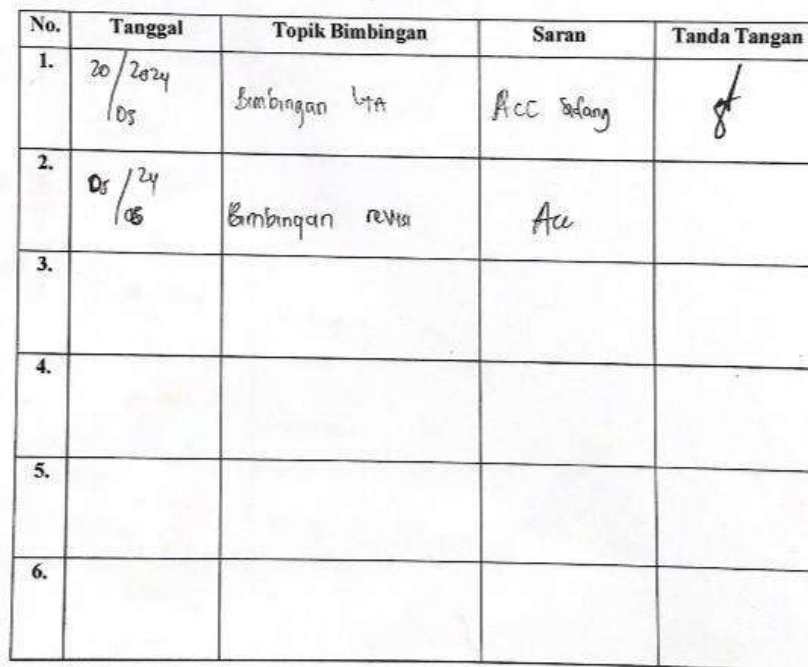 No. Tanggal Topik Bimbingan Saran Tanda Tangan
1. 20/2024
05 Bimbingan LTA Acc Sidang
2. 05/24
Bimbingan revisi Acc
3.
4.
5.
6.